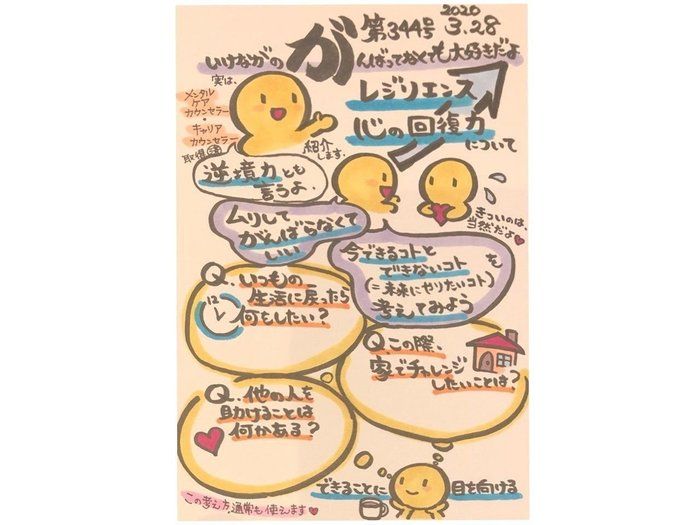 第344号 2020 3.28
いけながの がんばってなくても大好きだよ
実は、
メンタル
ケア
カウンセラー
・
キャリア
カウンセラー
取得済
紹介
します。
レジリエンス
心の回復力
について
逆境力とも
言うよ。
きついのは、
当然だよ♥
ムリして
がんばらなくて
いい
今できるコトと
できないコト を
(=未来にやりたいコト)
考えてみよう
Q.いつもの
生活に戻ったら
何をしたい?
12
Q.この際、
家でチャレンジ
したいことは?
Q.他の人を
助けることは
何かある?
できることに 目を向ける
この考え方、通常も使えます♥